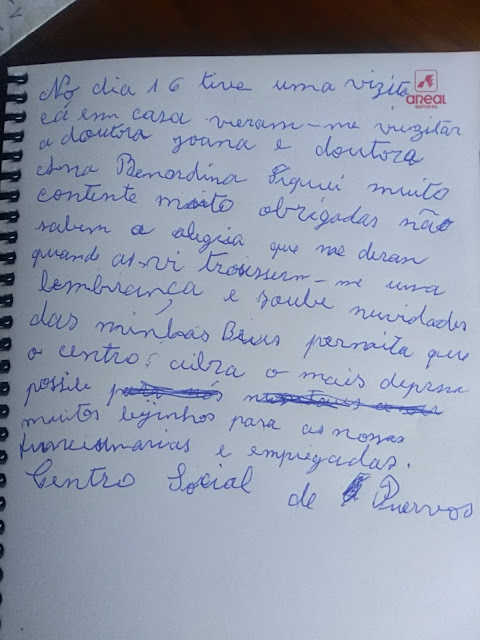 No dia 16 tive uma vizita
AREAL
EDITORES
cá em casa vieram-me vizitar
a doutora joana e doutora
Ana Benardina Fiquei muito
contente muito obrigadas não
sabem a alegisa que me deran
quando as-vi troisserm-me uma
lembirança e soube nuvidades
das minhas Deus permita que
o centro abra o mais depresa
possile
muitos bejinhos para as nossas
funcisnarias e empregadas.
Centro Social
de